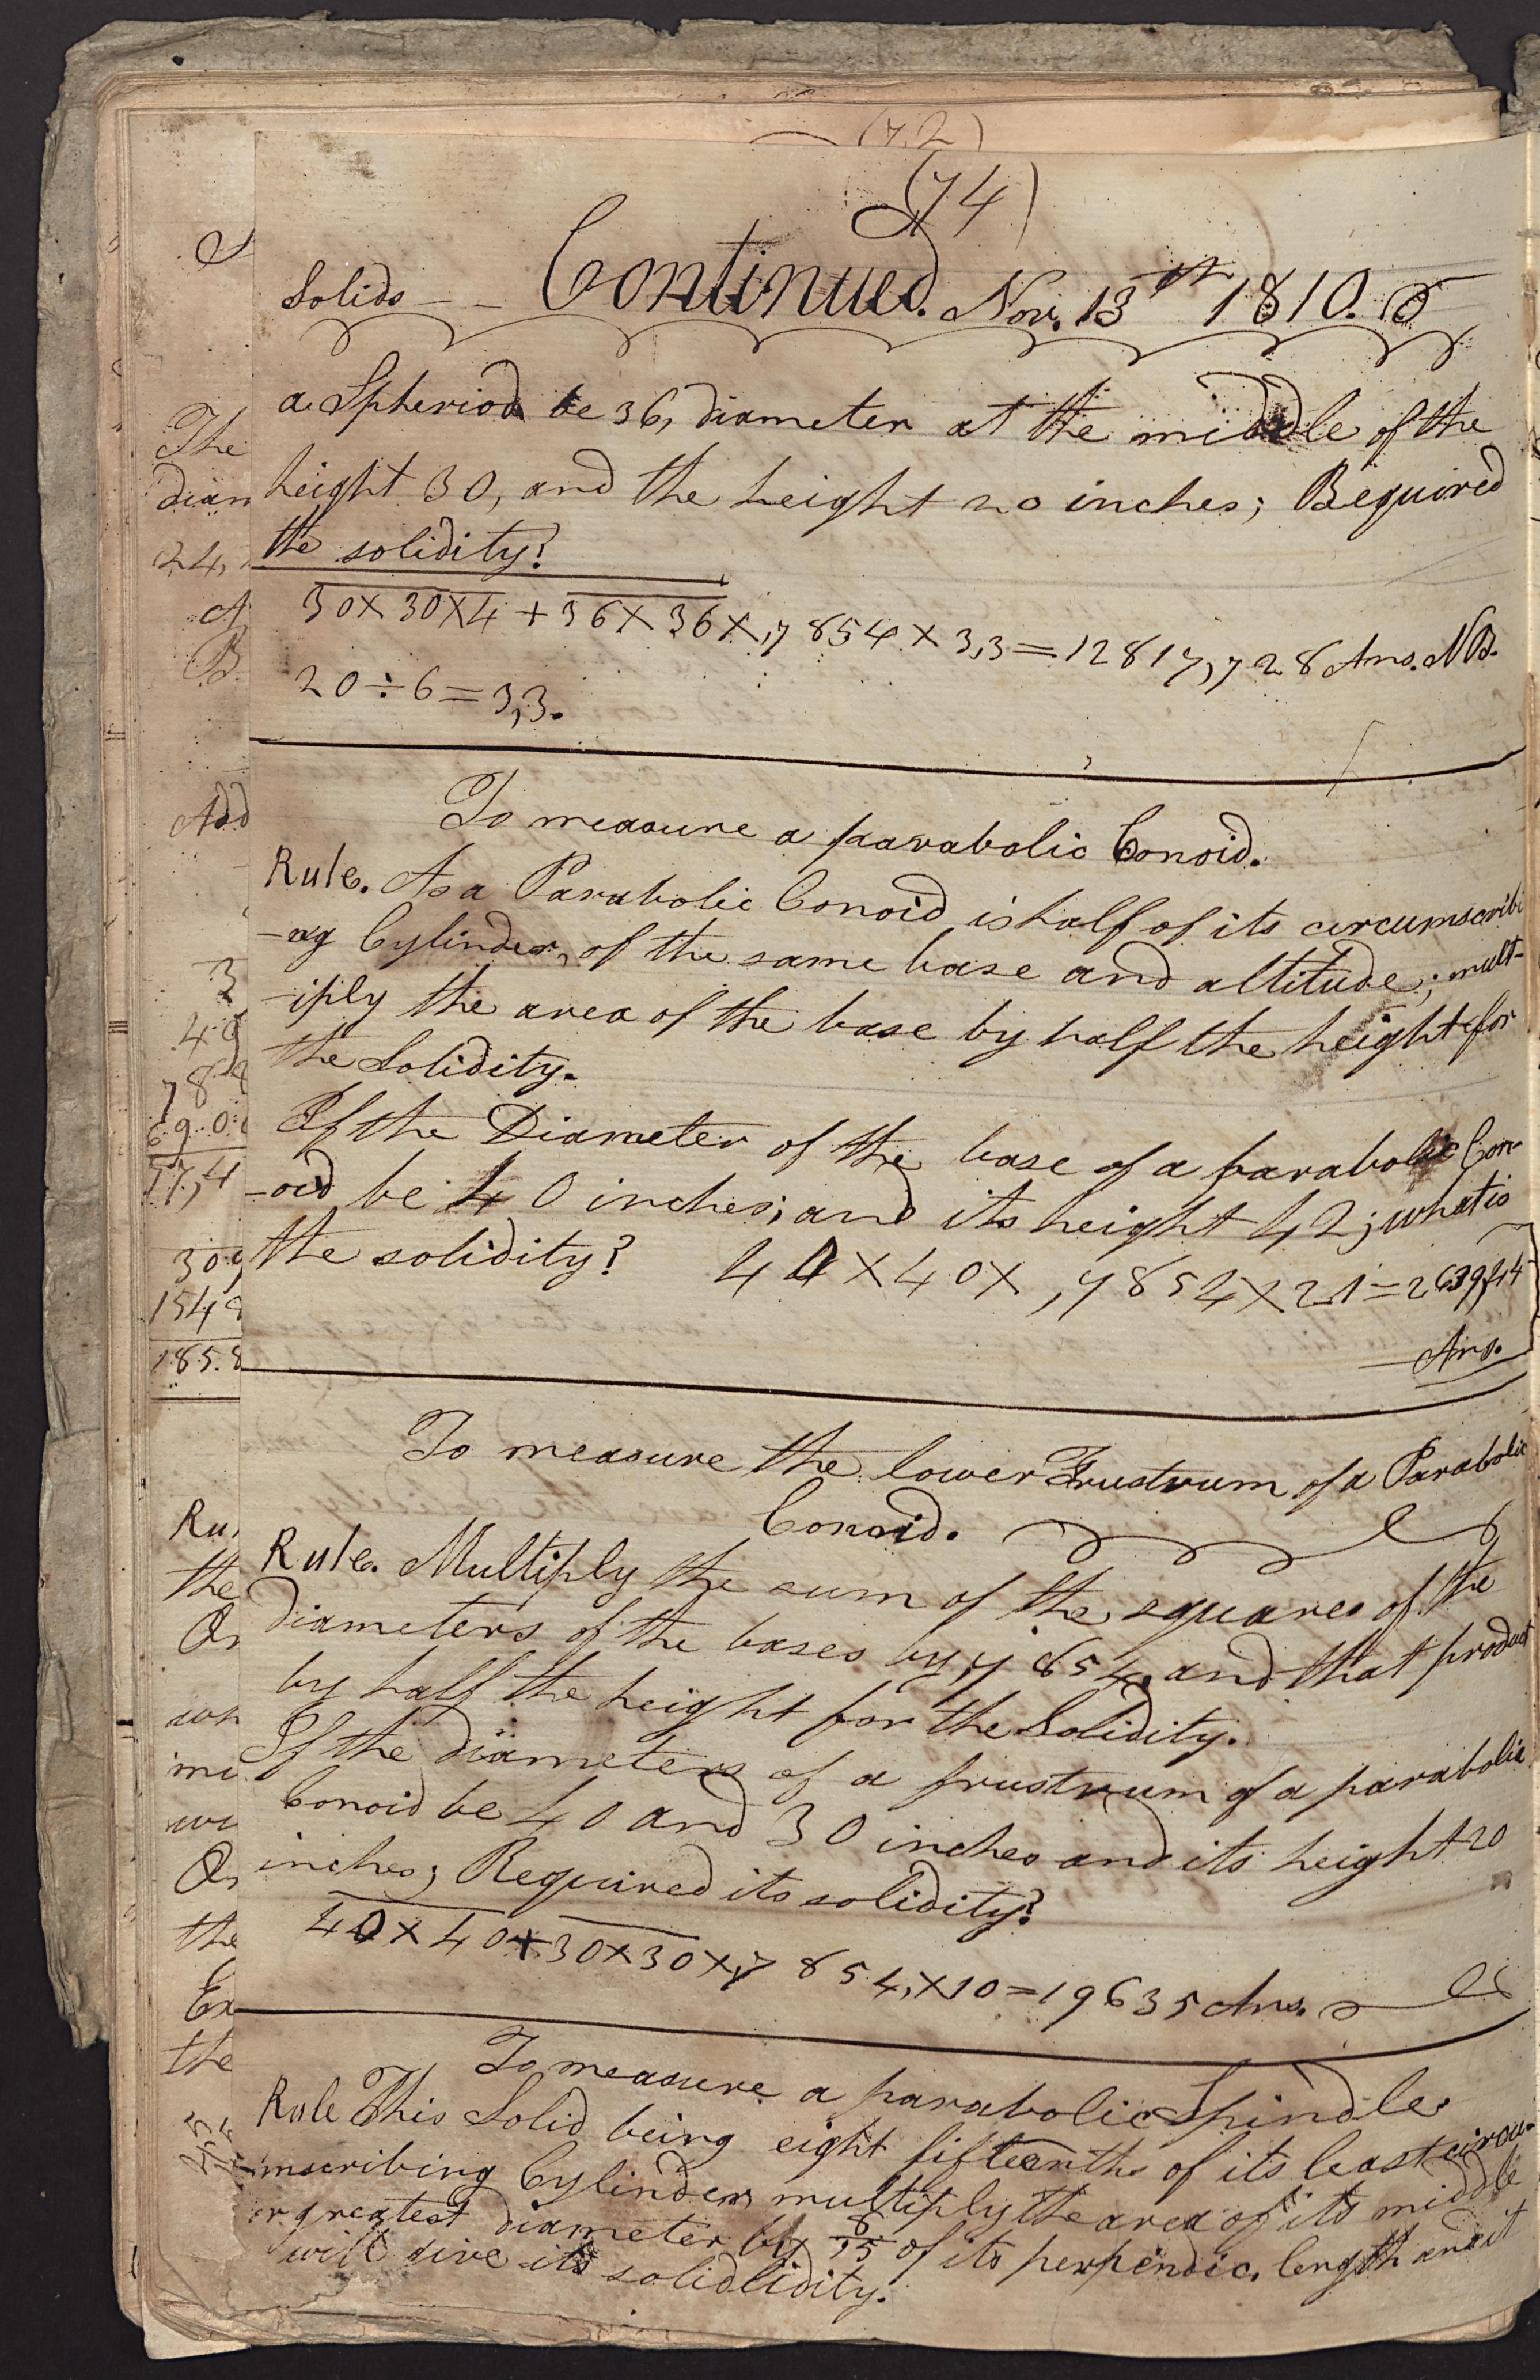 (72)
(74)
Solids - - Continued. Nov. 13th 1810.
a Spheriod be 36, diameter at the middle of the
height 30, and the height 20 inches; Required
the solidity?
30×30×4+36×36×,7854×3,3=12817,728 Ans. NB.
20÷6=3,3.
To measure a parabolic Conoid.
Rule. As a Parabolic Conoid is half of its circumscribi
-ng Cylinder, of the same base and altitude; mult-
-iply the area of the base by half the height for
the Solidity.
If the Diameter of the base of a parabolic Con-
-oid be 40 inches; and its height 42; what is
the solidity? 40×40×,7854×21=
Ans.
To measure the lower Frustrum of a Parabolic
Conoid.
Rule. Multiply the sum of the squares of the
diameters of the bases by ,7854, and that product
by half the height for the Solidity.
If the diameters of a frustrum of a parabolic
Conoid be 40 and 30 inches and its height 20
inches; Required its solidity?
40×40+30×30×,7854,×10=19635 Ans.
To measure a parabolic Spindle.
Rule This Solid being eight fifteenths of its least circu-
-mscribing Cylinder, multiply the area of its middle
or greatest diameter by 8/15 of its perpendic. length and it
will give its solidlidity.
The
diam
24,
A
B.
Add
3
49
78
69.0
77,4
30,9
154 8
185.8
Ru
the
Or
wh
mi
Or
the
Ex
the